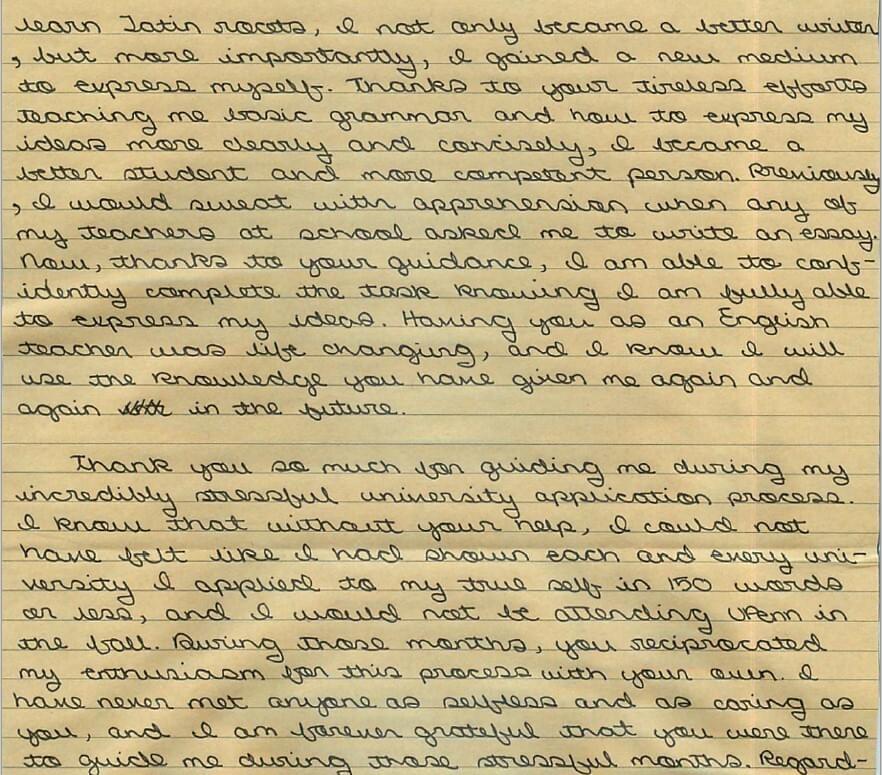 learn Latin roots, I not only became a better writer
, but more importantly, I gained a new medium
to express myself. Thanks to your tireless efforts
teaching me basic grammar and how to express my
ideas more clearly and concisely, I became a
better student and more competent person. Previously
, I would sweat with apprehension when any of
my teachers at school asked me to write an essay.
Now, thanks to your guidance, I am able to conf-
idently complete the task knowing I am fully able
to express my ideas. Having you as an English
teacher was life changing, and I know I will
use the knowledge you have given me again and
again in the future.
Thank you so much for guiding me during my
incredibly stressful university application process.
I know that without your help, I could not
have felt like I had shown each and every uni-
versity I applied to my true self in 150 words
or less, and I would not be attending UPenn in
the fall. During those months, you reciprocated
my enthusiasm for this process with your own. I
have never met anyone as selfless and as caring as
you, and I am forever grateful that you were there
to guide me during those stressful months. Regard-